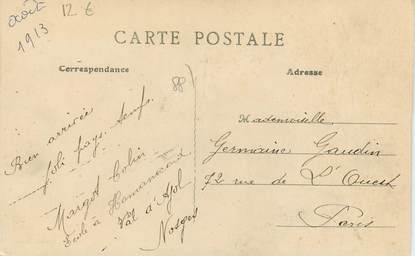 août
1913
12 €
CARTE POSTALE
Correspondance
Adresse
88
Bien arrivée
Joli pays. temps
Margot Colin
Ecole à Hamanxard
Val d'Ajol
Vosges
Mademoiselle,
Germaine Gaudin
72 rue de L'Ouest
Paris